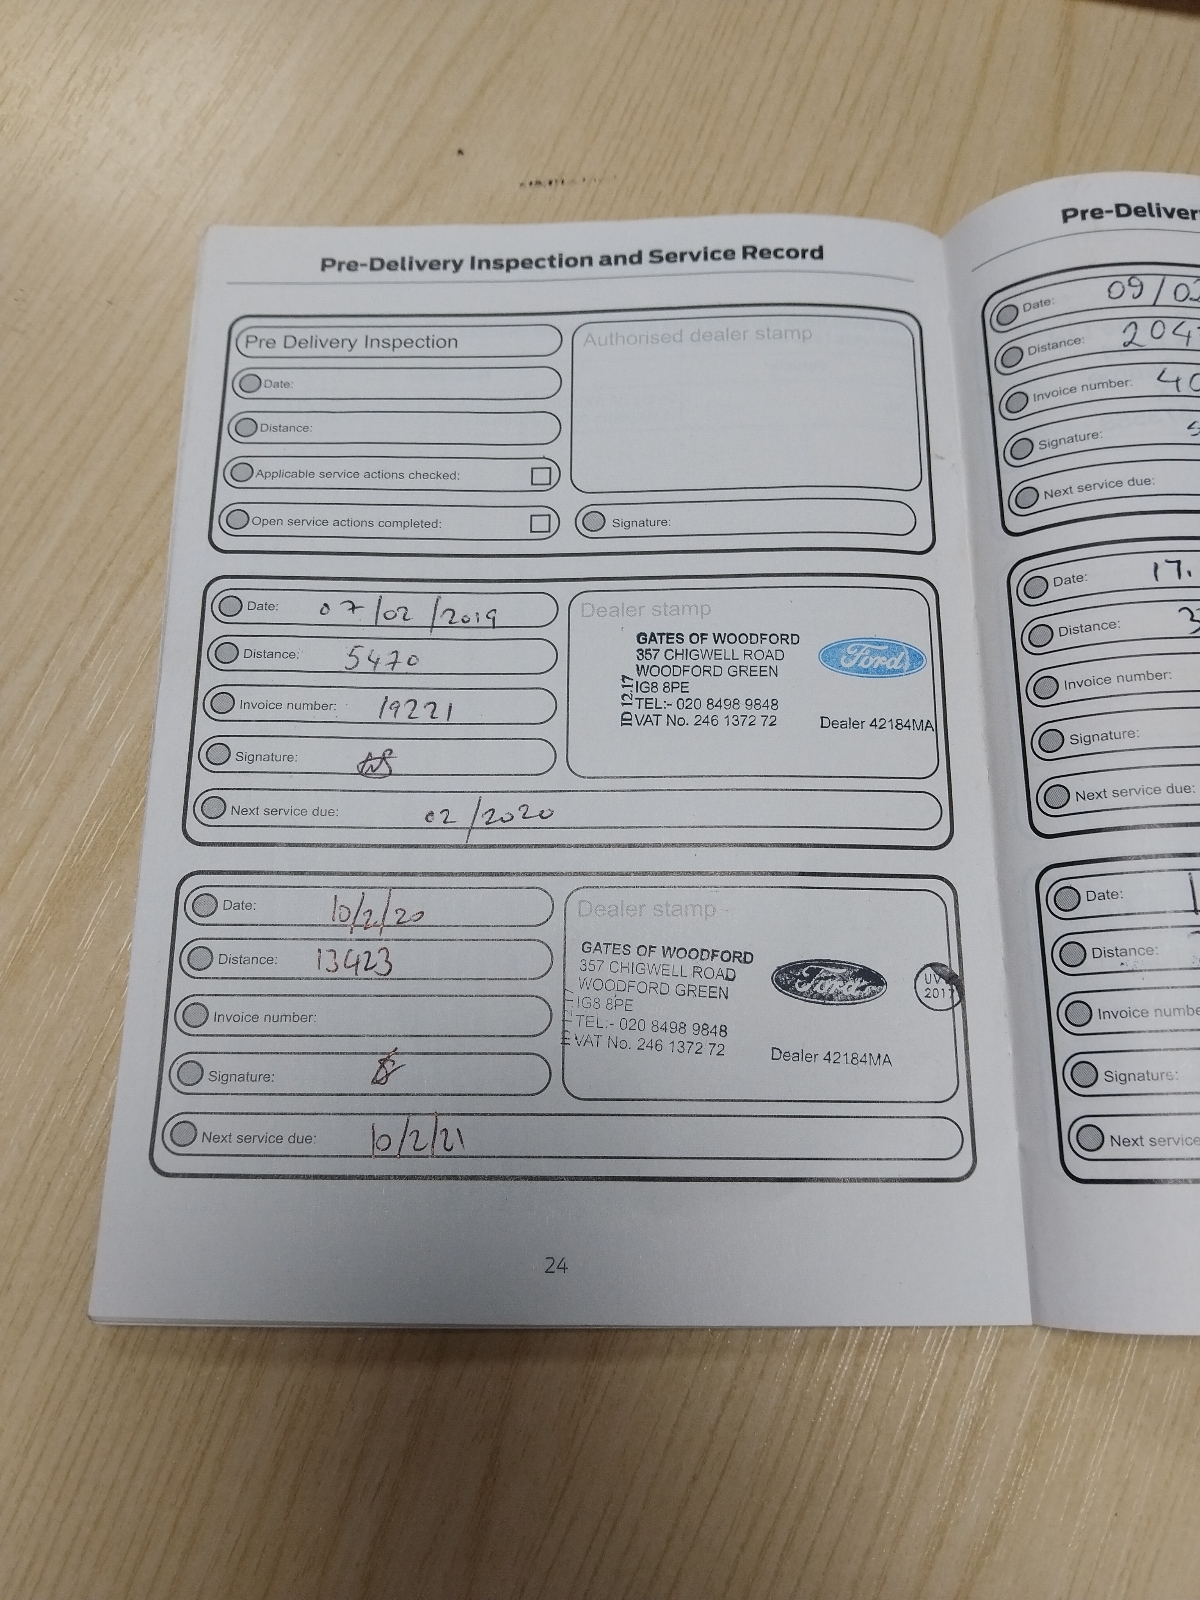 Pre-Delivery Inspection and Service Record
Pre Delivery Inspection
Date:
Distance:
Applicable service actions checked:
Open service actions completed:
Authorised dealer stamp
Signature:
Date: 07/02/2019
Distance: 5470
Invoice number: 19221
Signature:
Next service due: 02/2020
Dealer stamp
GATES OF WOODFORD
357 CHIGWELL ROAD
WOODFORD GREEN
IG8 8PE
TEL:- 020 8498 9848
VAT No. 246 1372 72
ID 12.17
Ford
Dealer 42184MA
Date: 10/2/20
Distance: 13423
Invoice number:
Signature:
Next service due: 10/2/21
Dealer stamp
GATES OF WOODFORD
357 CHIGWELL ROAD
WOODFORD GREEN
IG8 8PE
TEL:- 020 8498 9848
VAT No. 246 1372 72
Ford
Dealer 42184MA
UV
2017
24
Date: 09/02
Distance: 204
Invoice number: 40
Signature:
Next service due:
Date: 17.
Distance: 3
Invoice number:
Signature:
Next service due:
Date:
Distance:
Invoice
Signature:
Next service